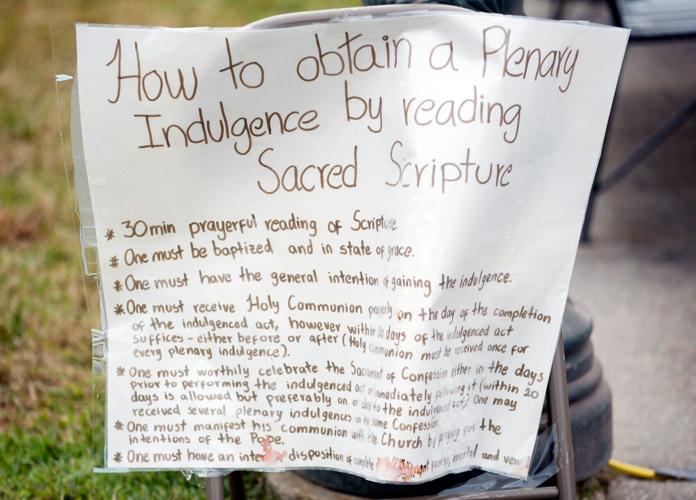 How to obtain a Plenary
Indulgence by reading
Sacred Scripture
* 30min prayerful reading of Scripture
* One must be baptized and in state of grace.
* One must have the general intention of gaining the indulgence.
* One must receive Holy Communion properly on the day of the completion
of the indulgenced act, however within days of the indulgenced act
suffices - either before or after (Holy Communion must be received once for
every plenary indulgence).
* One must worthily celebrate the Sacrament of Confession either in the days
prior to performing the indulgenced act or immediately following it (within 20
days is allowed but preferably on or to the indulgenced act) One may
received several plenary indulgences on the same Confession.
* One must manifest his communion with the Church by praying for the
intentions of the Pope.
* One must have an disposition of complete from mortal and